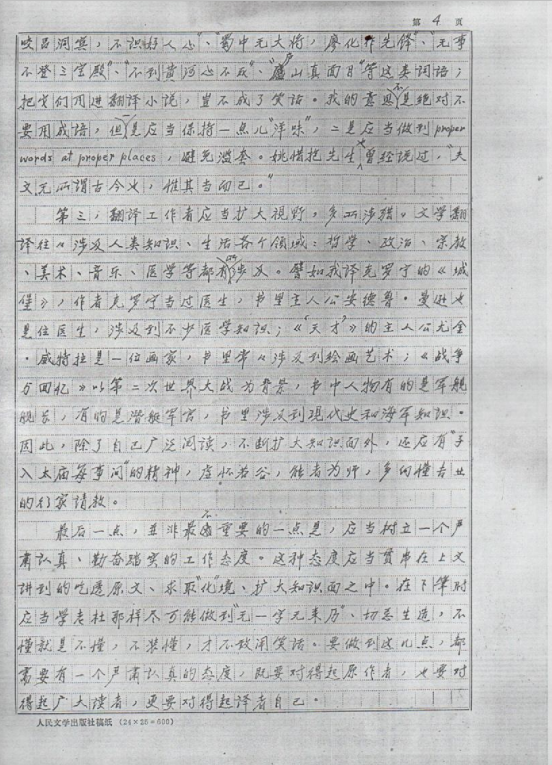 第 4 页
咬吕洞宾，不识好人心"、"蜀中无大将，廖化作先锋"、"无事
不登三宝殿"、"不到黄河心不死"、"庐山真面目"等这类词语；
把它们用进翻译小说，岂不成了笑话。我的意思不是绝对不
要用成语，但一是应当保持一点儿"洋味"，二是应当做到 proper
words at proper places，避免滥套。姚惜抱先生也曾经说过，"大
文无所谓古今也，惟其当而已。"
第三，翻译工作者应当扩大视野，多所涉猎。文学翻
译往々涉及人类知识、生活各个领域：哲学、政治、宗教
、美术、音乐、医学等都有所涉及。譬如我译克罗宁的《城
堡》，作者克罗宁当过医生，书里主人公安德鲁·曼逊也
是位医生，涉及到不少医学知识；《"天才"》的主人公尤金
·威特拉是一位画家，书里常々涉及到绘画艺术；《战争
与回忆》以第二次世界大战为背景，书中人物有的是军舰
舰长，有的是潜艇军官，书里涉及到现代史和海军知识。
因此，除了自己广泛阅读，不断扩大知识面外，还应有"子
入太庙每事问"的精神，虚怀若谷，能者为师，多向懂专业
的行家请教。
最后一点，并非最不重要的一点是，应当树立一个严
肃认真、勤奋踏实的工作态度。这种态度应当贯串在上文
讲到的吃透原文、求取"化"境、扩大知识面之中。在下笔时
应当学老杜那样尽可能做到"无一字无来历"、切忌生造，不
懂就是不懂，不装懂，才不致闹笑话。要做到这几点，都
需要有一个严肃认真的态度，既要对得起原作者，也要对
得起广大读者，更要对得起译者自己。
人民文学出版社稿纸（24×25=600）